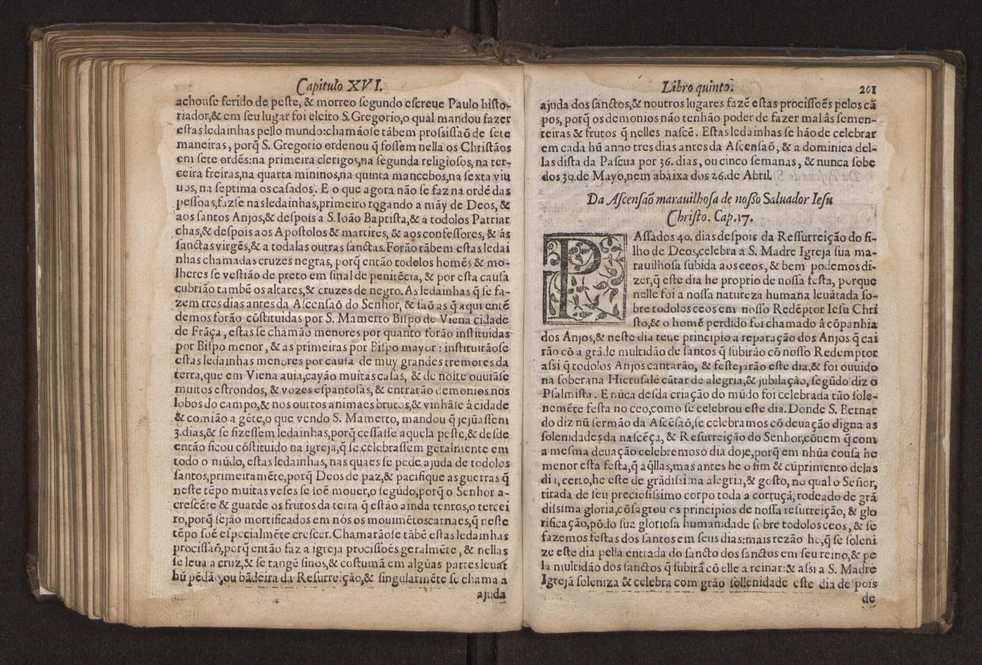 Capitulo XVI.
achouse ferido de peste, & morreo segundo escreue Paulo histo-
riador, & em seu lugar foi eleito S. Gregorio, o qual mandou fazer
estas ledainhas pello mundo: chamãose tãbem prosissaõ de sete
maneiras, porq̃ S. Gregorio ordenou q̃ fossem nella os Christãos
em sete ordẽs: na primeira clerigos, na segunda religiosos, na ter-
ceira freiras, na quarta mininos, na quinta mancebos, na sexta viu
uas, na septima os casados. E o que agora não se faz na ordẽ das
pessoas, fazse na ledainhas, primeiro rogando a mãy de Deos, &
aos santos Anjos, & despois a S. Ioão Baptista, & a todolos Patriar
chas, & despois aos Apostolos & martires, & aos confessores, & ás
sanctas virgẽs, & a todalas outras sanctas. Forão tãbem estas ledai
nhas chamadas cruzes negras, porq̃ então todolos homẽs & mo-
lheres se vestião de preto em sinal de penitẽcia, & por esta causa
cubrião tambẽ os altares, & cruzes de negro. As ledainhas q̃ se fa-
zem tres dias antes da Ascensaõ do Senhor, & saõ as q̃ aqui entẽ
demos forão cõstituidas por S. Mamerto Bispo de Viena cidade
de Frãça, estas se chamão menores por quanto forão instituidas
por Bispo menor, & as primeiras por Bispo mayor: instituirãose
estas ledainhas menores por causa de muy grandes tremores da
terra, que em Viena auia, cayão muitas casas, & de noite ouuiãse
muitos estrondos, & vozes espantosas, & entrarão demonios nos
lobos do campo, & nos outros animaes brutos, & vinhãse á cidade
& comião a gẽte, o que vendo S. Mamerto, mandou q̃ jejũassem
3. dias, & se fizessem ledainhas, porq̃ cessasse aquela peste, & desde
então ficou cõstituido na igreja, q̃ se celebrassem geralmente em
todo o mũdo, estas ledainhas, nas quaes se pede ajuda de todolos
santos, primeiramẽte, porq̃ Deos de paz, & pacifique as guerras q̃
neste tẽpo muitas veses se soẽ mouer, o segũdo, porq̃ o Senhor a-
crescẽte & guarde os frutos da terra q̃ estão ainda tenros, o tercei
ro, porq̃ sejão mortificados em nós os mouimẽtos carnaes, q̃ neste
tẽpo soẽ especialmẽte crescer. Chamarãose tãbẽ estas ledainhas
procissaõ, porq̃ então faz a igreja procissoẽs geralmẽte, & nellas
se leua a cruz, & se tangẽ sinos, & costumã em algũas partes leuar
hũ pẽdão, ou bãdeira da Resurreição, & singularmẽte se chama a
ajuda
Libro quinto.
201
ajuda dos sanctos, & noutros lugares fazẽ estas procissoẽs pelos cã
pos, porq̃ os demonios não tenhão poder de fazer mal ás semen-
teiras & frutos q̃ nelles nascẽ. Estas ledainhas se hão de celebrar
em cada hũ anno tres dias antes da Ascensaõ, & a dominica del-
las dista da Pascua por 36. dias, ou cinco semanas, & nunca sobe
dos 30. de Mayo, nem abaixa dos 26. de Abril.
Da Ascensaõ marauilhosa de nosso Saluador Iesu
Christo. Cap. 17.
PAssados 40. dias despois da Ressurreição do fi-
lho de Deos, celebra a S. Madre Igreja sua ma-
rauilhosa subida aos ceos, & bem podemos di-
zer, q̃ este dia he proprio de nossa festa, porque
nelle foi a nossa natureza humana leuãtada so-
bre todolos ceos em nosso Redẽptor Iesu Chri
sto, & o homẽ perdido foi chamado á cõpanhia
dos Anjos, & neste dia teue principio a reparação dos Anjos q̃ cai
rão cõ a grãde multidão de santos q̃ subirão cõ nosso Redemptor
assi q̃ todolos Anjos cantarão, & festejarão este dia, & foi ouuido
na soberana Hierusalẽ cãtar de alegria, & jubilação, segũdo diz o
Psalmista. E nũca desda criação do mũdo foi celebrada tão sole-
nemẽte festa no ceo, como se celebrou este dia. Donde S. Bernar
do diz nũ sermão da Ascẽsaõ, se celebramos cõ deuação digna as
solenidades da nascẽça, & Resurreição do Senhor, cõuem q̃ com
a mesma deuação celebremos o dia doje, porq̃ em nhũa cousa he
menor esta festa, q̃ aq̃llas, mas antes he o fim & cũprimento delas
dia, certo, he este de grãdissima alegria, & gosto, no qual o Señor,
tirada de seu preciosissimo corpo toda a cortuçã, rodeado de grã
dissima gloria, cõsagrou os principios de nossa resurreição, & glo
rificação, põdo sua gloriosa humanidade sobre todolos ceos, & se
fazemos festas dos santos em seus dias: mais rezão he, q̃ se soleni
ze este dia pella entrada do sancto dos sanctos em seu reino, & pe
la multidão dos sanctos q̃ subirã cõ elle a reinar: & assi a S. Madre
Igreja soleniza & celebra com grão sollenidade este dia de pois
de